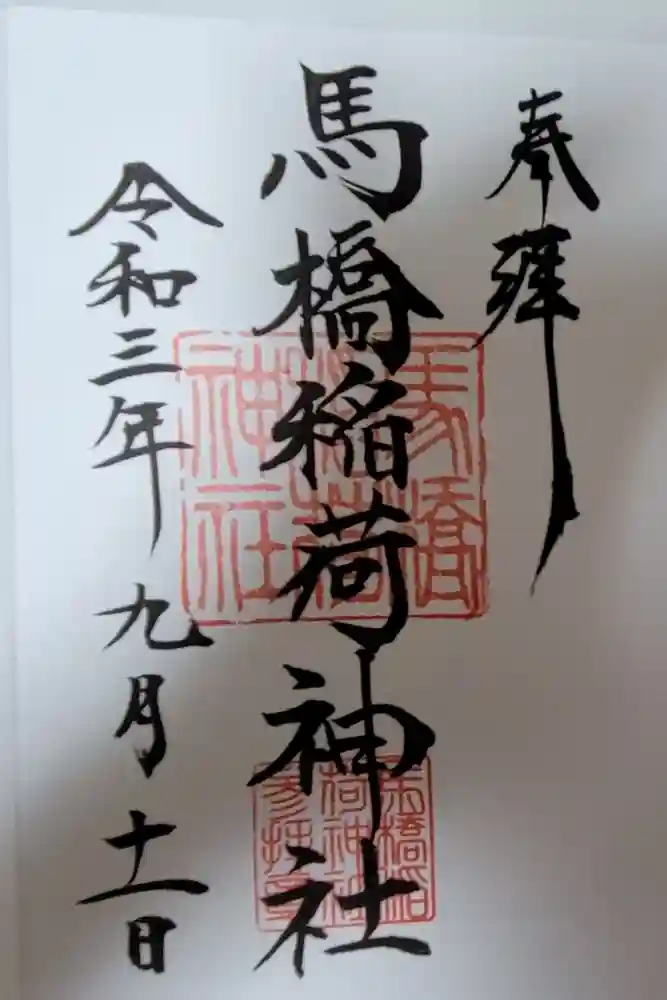 奉拝
馬橋稲荷神社
令和三年九月十一日
馬橋
稲荷
神社
馬橋稲
荷神社
参拝章